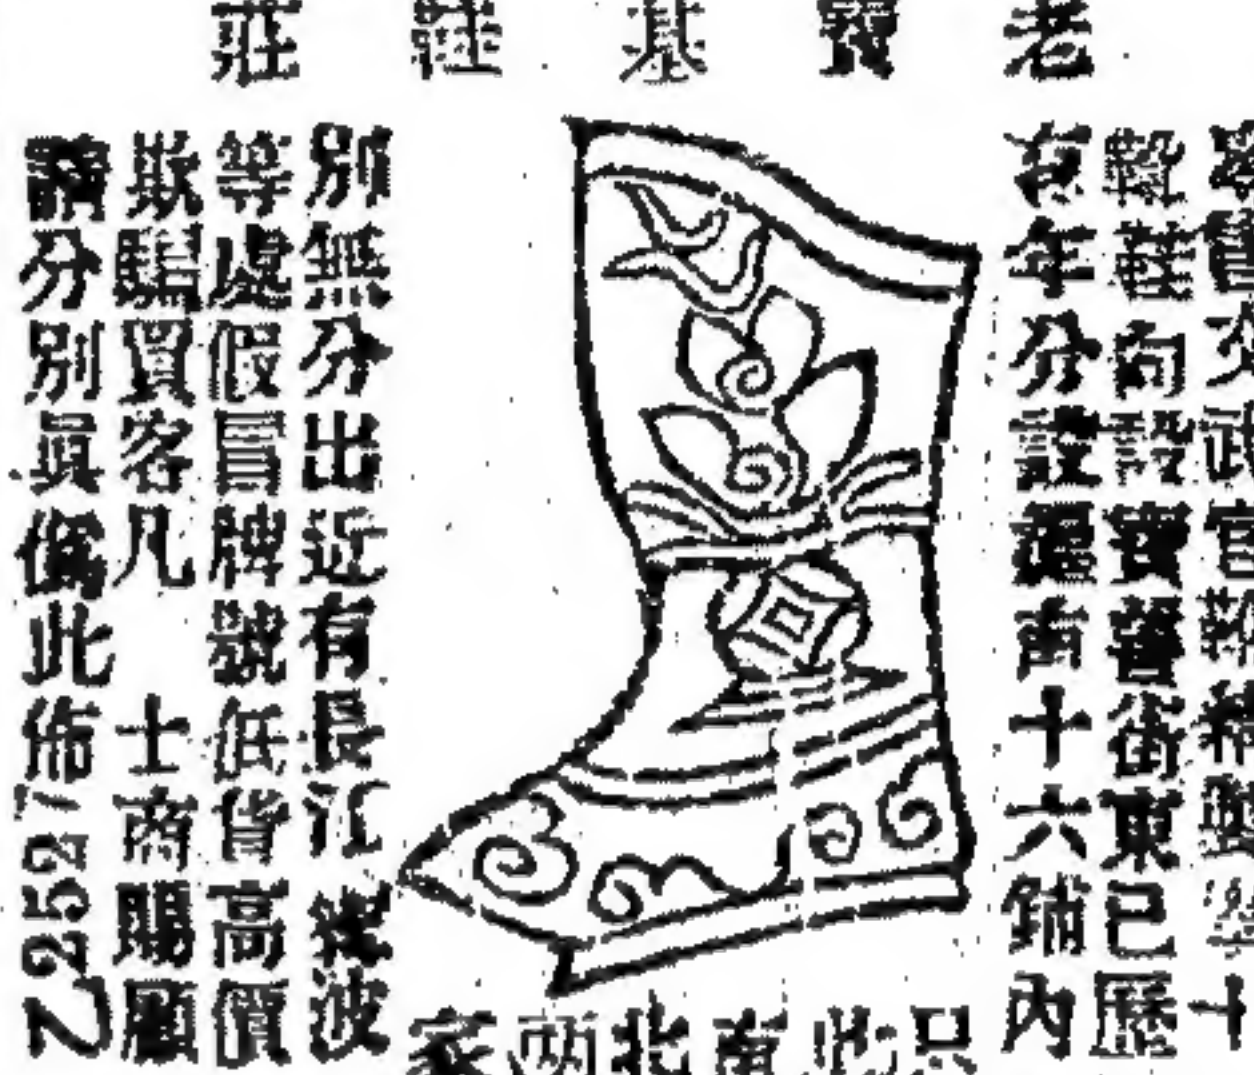 老寶基鞋莊
文武官靴精
鞋向設寶善街東已歷
有年分設 南十六鋪內
只此南北兩家
別無分出近有長江 波
等處假冒牌號低貨高價
欺騙買客凡 士商賜顧
請分別真偽此佈
Z2527